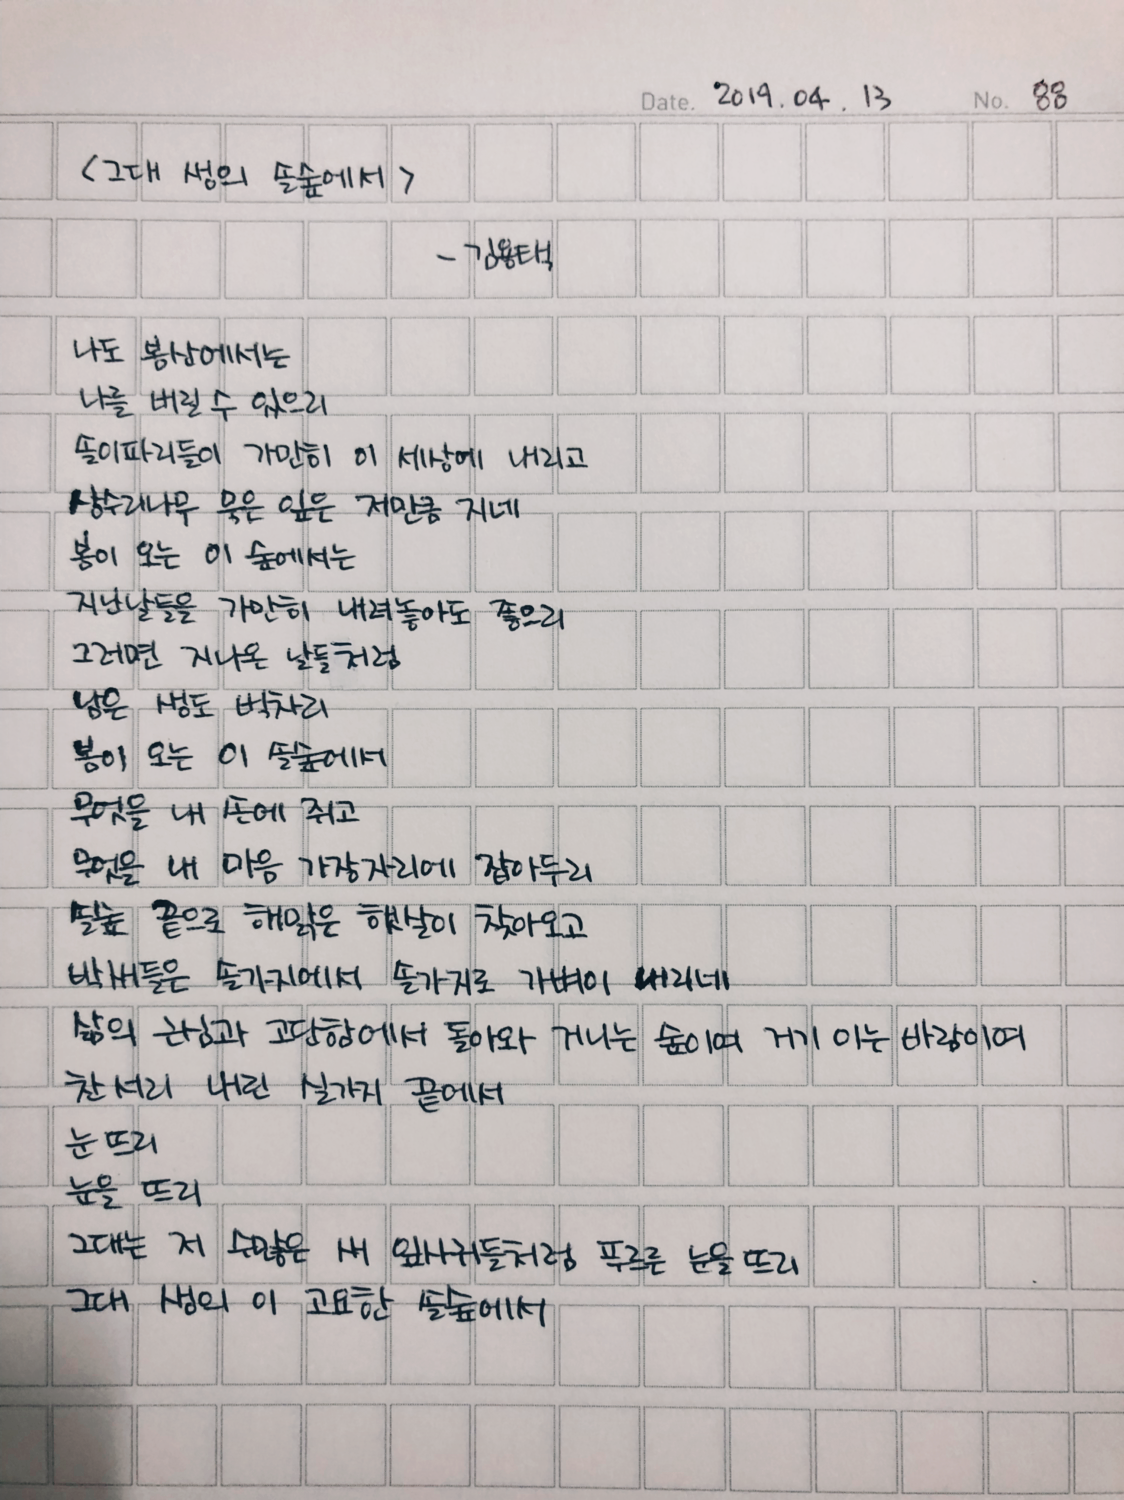 Date. 2019. 04. 13 No. 88
<그대 생의 솔숲에서>
- 김용택
나도 봄산에서는
나를 버릴 수 있으리
솔이파리들이 가만히 이 세상에 내리고
상수리나무 묵은 잎은 저만큼 지네
봄이 오는 이 숲에서는
지난날들을 가만히 내려놓아도 좋으리
그러면 지나온 날들처럼
남은 생도 벅차리
봄이 오는 이 솔숲에서
무엇을 내 손에 쥐고
무엇을 내 마음 가장자리에 잡아두리
솔숲 끝으로 해맑은 햇살이 찾아오고
박새들은 솔가지에서 솔가지로 가벼이 내리네
삶의 근심과 고단함에서 돌아와 거니는 숲이여 거기 이는 바람이여
찬 서리 내린 실가지 끝에서
눈 뜨리
눈을 뜨리
그대는 저 수많은 새 잎사귀들처럼 푸르른 눈을 뜨리
그대 생의 이 고요한 솔숲에서